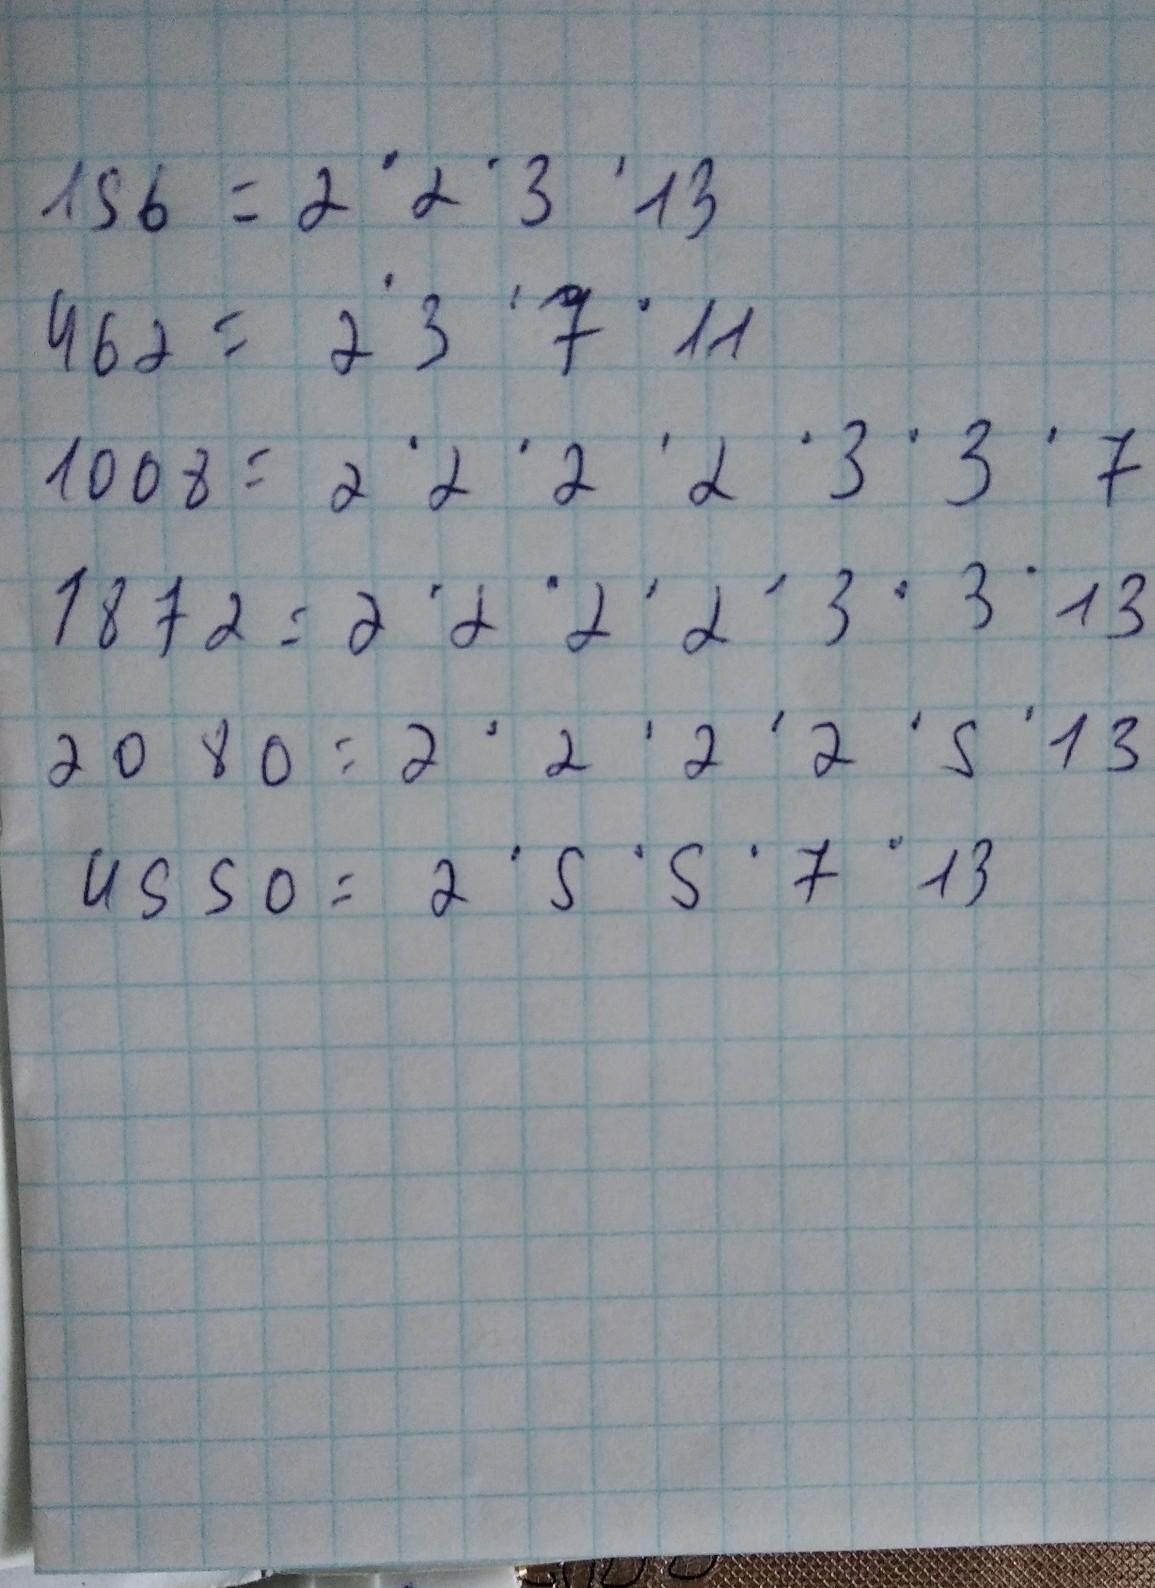 156 = 2 · 2 · 3 · 13
462 = 2 · 3 · 7 · 11
1008 = 2 · 2 · 2 · 2 · 3 · 3 · 7
1872 = 2 · 2 · 2 · 2 · 3 · 3 · 13
2080 = 2 · 2 · 2 · 2 · 5 · 13
4550 = 2 · 5 · 5 · 7 · 13